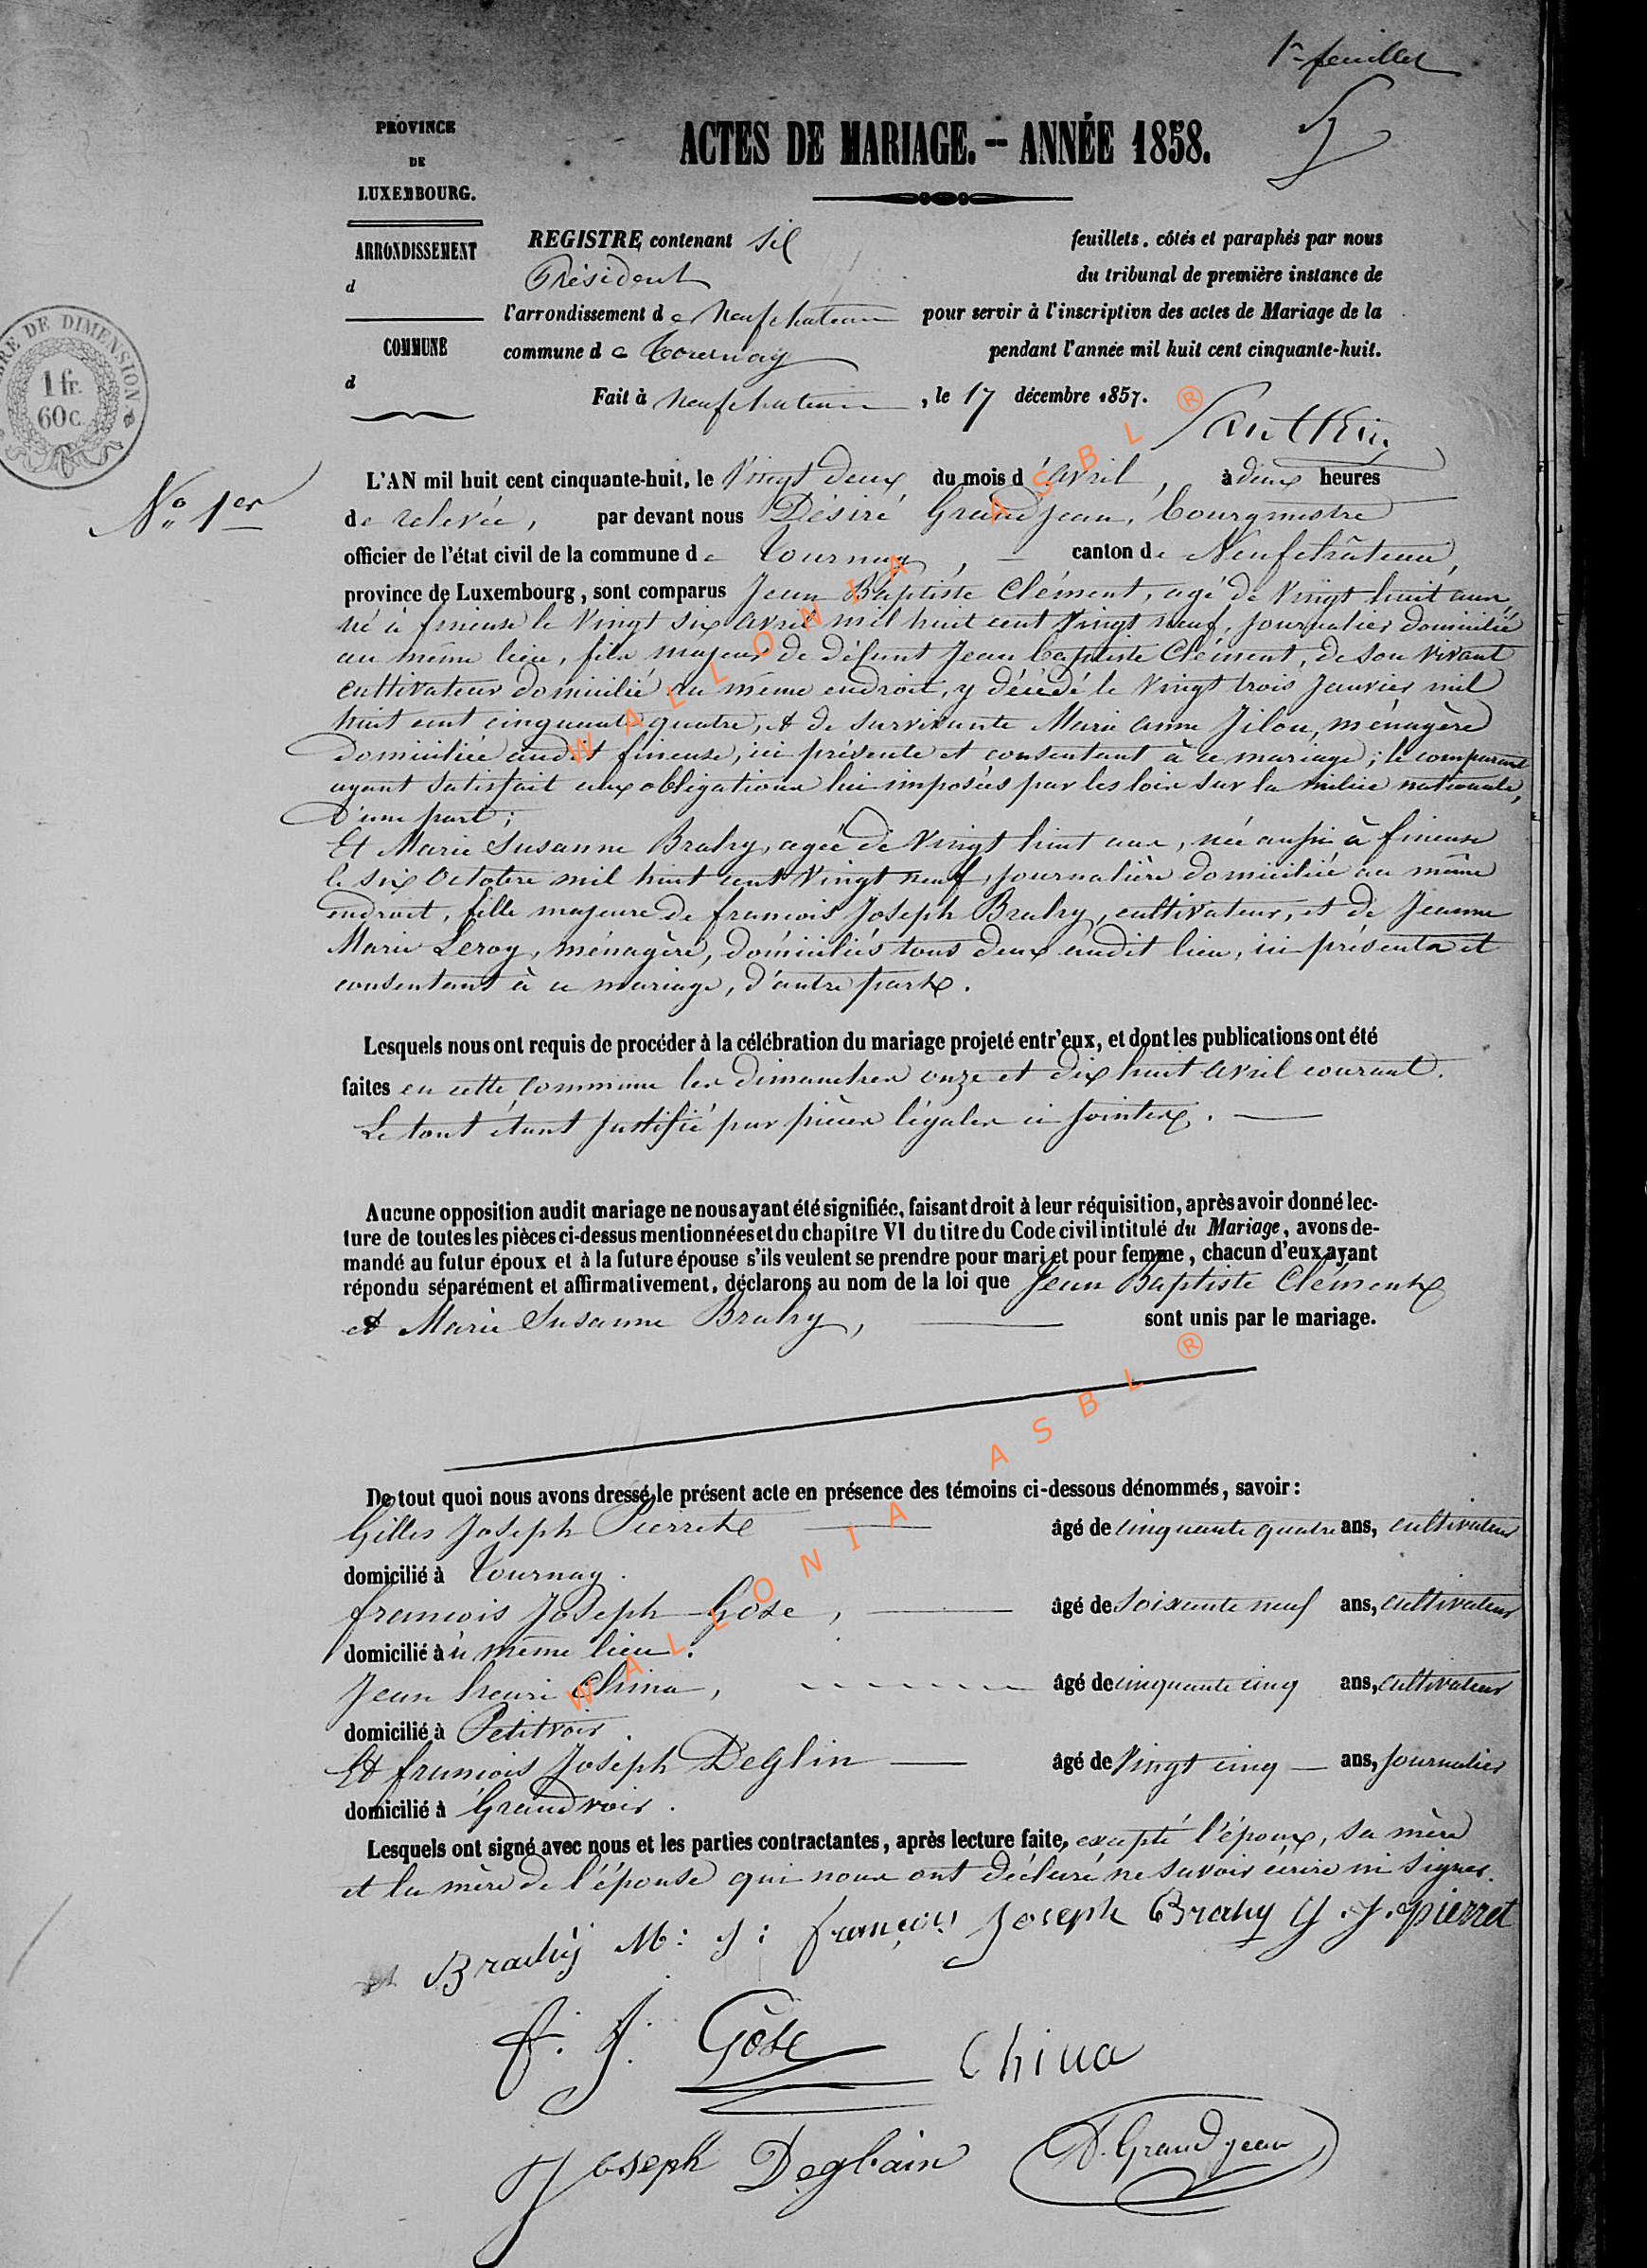 1r feuillet
PROVINCE
DE
LUXEMBOURG.
ACTES DE MARIAGE. -- ANNÉE 1858.
ARRONDISSEMENT
d
COMMUNE
d
REGISTRE contenant six feuillets, côtés et paraphés par nous
Président du tribunal de première instance de
l'arrondissement de Neufchateau pour servir à l'inscription des actes de Mariage de la
commune de Tournay pendant l'année mil huit cent cinquante-huit.
Fait à Neufchateau, le 17 décembre 1857.
TIMBRE DE DIMENSION
1 fr.
60 c.
No 1er
L'AN mil huit cent cinquante-huit, le Vingt deux du mois d'avril, à deux heures
de relevée, par devant nous Désiré Grandjean, bourgmestre
officier de l'état civil de la commune de Tournay, canton de Neufchâteau,
province de Luxembourg, sont comparus Jean Baptiste Clément, agé de Vingt huit ans,
né à fineuse le Vingt six avril mil huit cent Vingt neuf, journalier domicilié
au même lieu, fils majeur de défunt Jean baptiste Clément, de son vivant
cultivateur domicilié au même endroit, y décédé le Vingt trois Janvier mil
huit cent cinquante quatre, & de survivante Marie anne Jilou, ménagère
domiciliée audit fineuse, ici présente et consentant à ce mariage; le comparant
ayant satisfait aux obligations lui imposées par les lois sur la milice nationale,
D'une part;
Et Marie Susanne Brahy, agée de Vingt huit ans, née aussi à fineuse
le six Octobre mil huit cent Vingt neuf, journalière domiciliée au même
endroit, fille majeure de francois Joseph Brahy, cultivateur, et de Jeanne
Marie Leroy, ménagère, domiciliés tous deux audit lieu, ici présents et
consentant à ce mariage, d'autre part.
Lesquels nous ont requis de procéder à la célébration du mariage projeté entr'eux, et dont les publications ont été
faites en cette commune les dimanches onze et dix huit avril courant.
Le tout étant justifié par pièces légales ci jointes.
Aucune opposition audit mariage ne nous ayant été signifiée, faisant droit à leur réquisition, après avoir donné lec-
ture de toutes les pièces ci-dessus mentionnées et du chapitre VI du titre du Code civil intitulé du Mariage, avons de-
mandé au futur époux et à la future épouse s'ils veulent se prendre pour mari et pour femme, chacun d'eux ayant
répondu séparément et affirmativement, déclarons au nom de la loi que Jean Baptiste Clément
et Marie Susanne Brahy, sont unis par le mariage.
De tout quoi nous avons dressé le présent acte en présence des témoins ci-dessous dénommés, savoir :
Gilles Joseph Pierret âgé de cinquante quatre ans, cultivateur
domicilié à Tournay.
francois Joseph Gôse, âgé de soixante neuf ans, cultivateur
domicilié à ù même lieu.
Jean henri China, âgé de cinquante cinq ans, cultivateur
domicilié à Petitvoir
Et francois Joseph Deglin âgé de Vingt cinq ans, journalier
domicilié à Grandvoir.
Lesquels ont signé avec nous et les parties contractantes, après lecture faite, excepté l'époux, sa mère
et la mère de l'épouse qui nous ont déclaré ne savoir écrire ni signer.
Brahy M: J: françois Joseph Brahy G. J. pierret
f. J. Gôse China
Joseph Deglain D. Grandjean
WALLONIA ASBL ®
WALLONIA ASBL ®